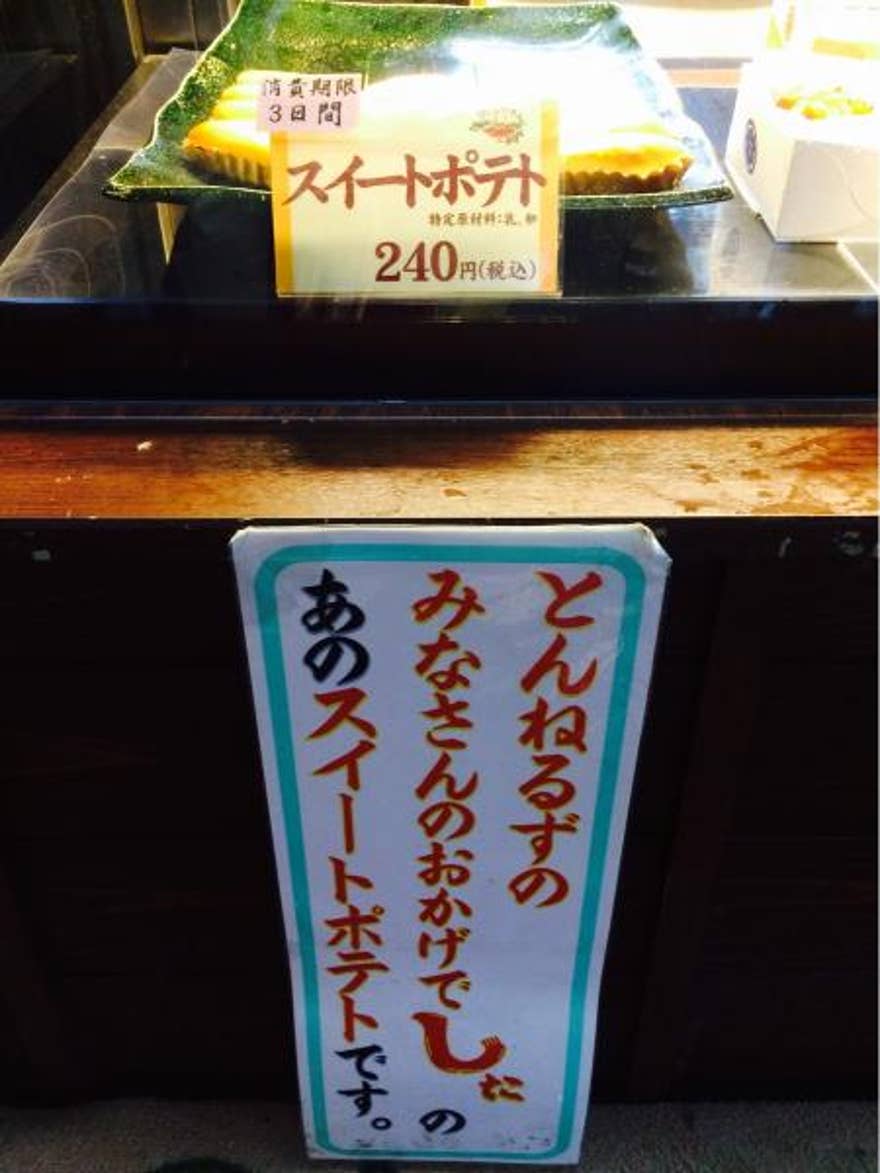 消費期限
3日間
スイートポテト
特定原材料:乳、卵
240円(税込)
とんねるずの
みなさんのおかげでしたの
あのスイートポテトです。